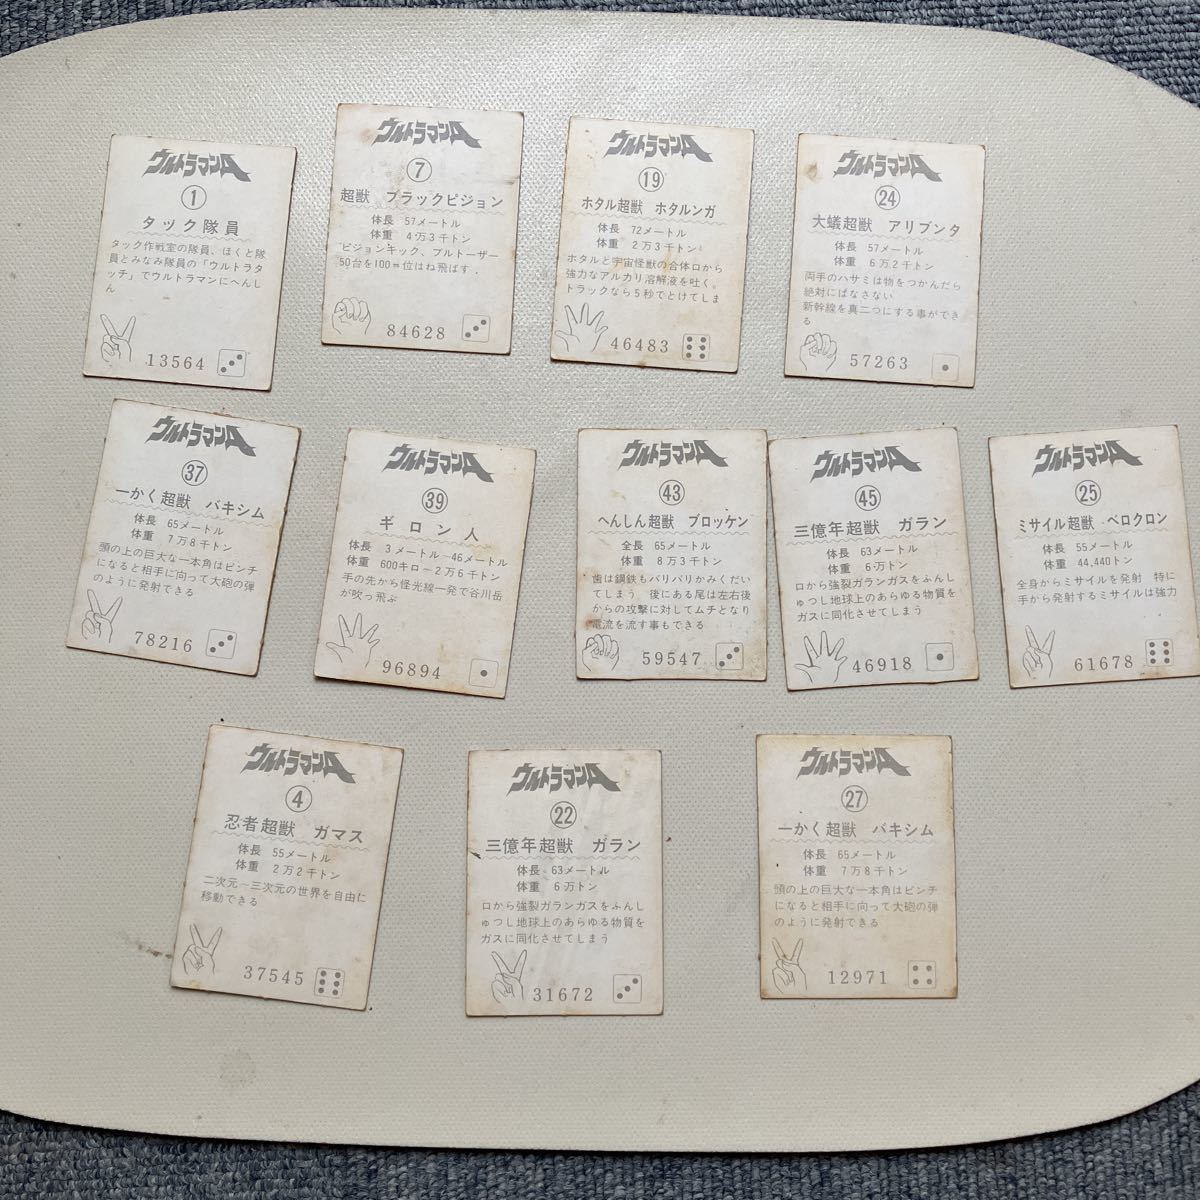 ウルトラマンA
1
タック隊員
タック作戦室の隊員、ほくと隊
員とみなみ隊員の「ウルトラタ
ッチ」でウルトラマンにへんし
ん
13564
ウルトラマンA
7
超獣 ブラックピジョン
体長 57メートル
体重 4万3千トン
ピジョンキック、ブルトーザー
50台を100m位はね飛ばす.
84628
ウルトラマンA
19
ホタル超獣 ホタルンガ
体長 72メートル
体重 2万3千トン
ホタルと宇宙怪獣の合体口から
強力なアルカリ溶解液を吐く。
トラックなら5秒でとけてしま
46483
ウルトラマンA
24
大蟻超獣 アリブンタ
体長 57メートル
体重 6万2千トン
両手のハサミは物をつかんだら
絶対にばなさない
新幹線を真二つにする事ができ
る
57263
ウルトラマンA
37
一かく超獣 バキシム
体長 65メートル
体重 7万8千トン
頭の上の巨大な一本角はピンチ
になると相手に向って大砲の弾
のように発射できる
78216
ウルトラマンA
39
ギロン人
体長 3メートル~46メートル
体重 600キロ~2万6千トン
手の先から怪光線一発で谷川岳
が吹っ飛ぶ
96894
ウルトラマンA
43
へんしん超獣 ブロッケン
全長 65メートル
体重 8万3千トン
歯は鋼鉄もバリバリかみくだい
てしまう 後にある尾は左右後
からの攻撃に対してムチとなり
電流を流す事もできる
59547
ウルトラマンA
45
三億年超獣 ガラン
体長 63メートル
体重 6万トン
口から強裂ガランガスをふんし
ゅつし地球上のあらゆる物質を
ガスに同化させてしまう
46918
ウルトラマンA
25
ミサイル超獣・ベロクロン
体長 55メートル
体重 44,440トン
全身からミサイルを発射 特に
手から発射するミサイルは強力
61678
ウルトラマンA
4
忍者超獣 ガマス
体長 55メートル
体重 2万2千トン
二次元~三次元の世界を自由に
移動できる
37545
ウルトラマンA
22
三億年超獣 ガラン
体長 63メートル
体重 6万トン
口から強裂ガランガスをふんし
ゅつし地球上のあらゆる物質を
ガスに同化させてしまう
31672
ウルトラマンA
27
一かく超獣 バキシム
体長 65メートル
体重 7万8千トン
頭の上の巨大な一本角はピンチ
になると相手に向って大砲の弾
のように発射できる
12971